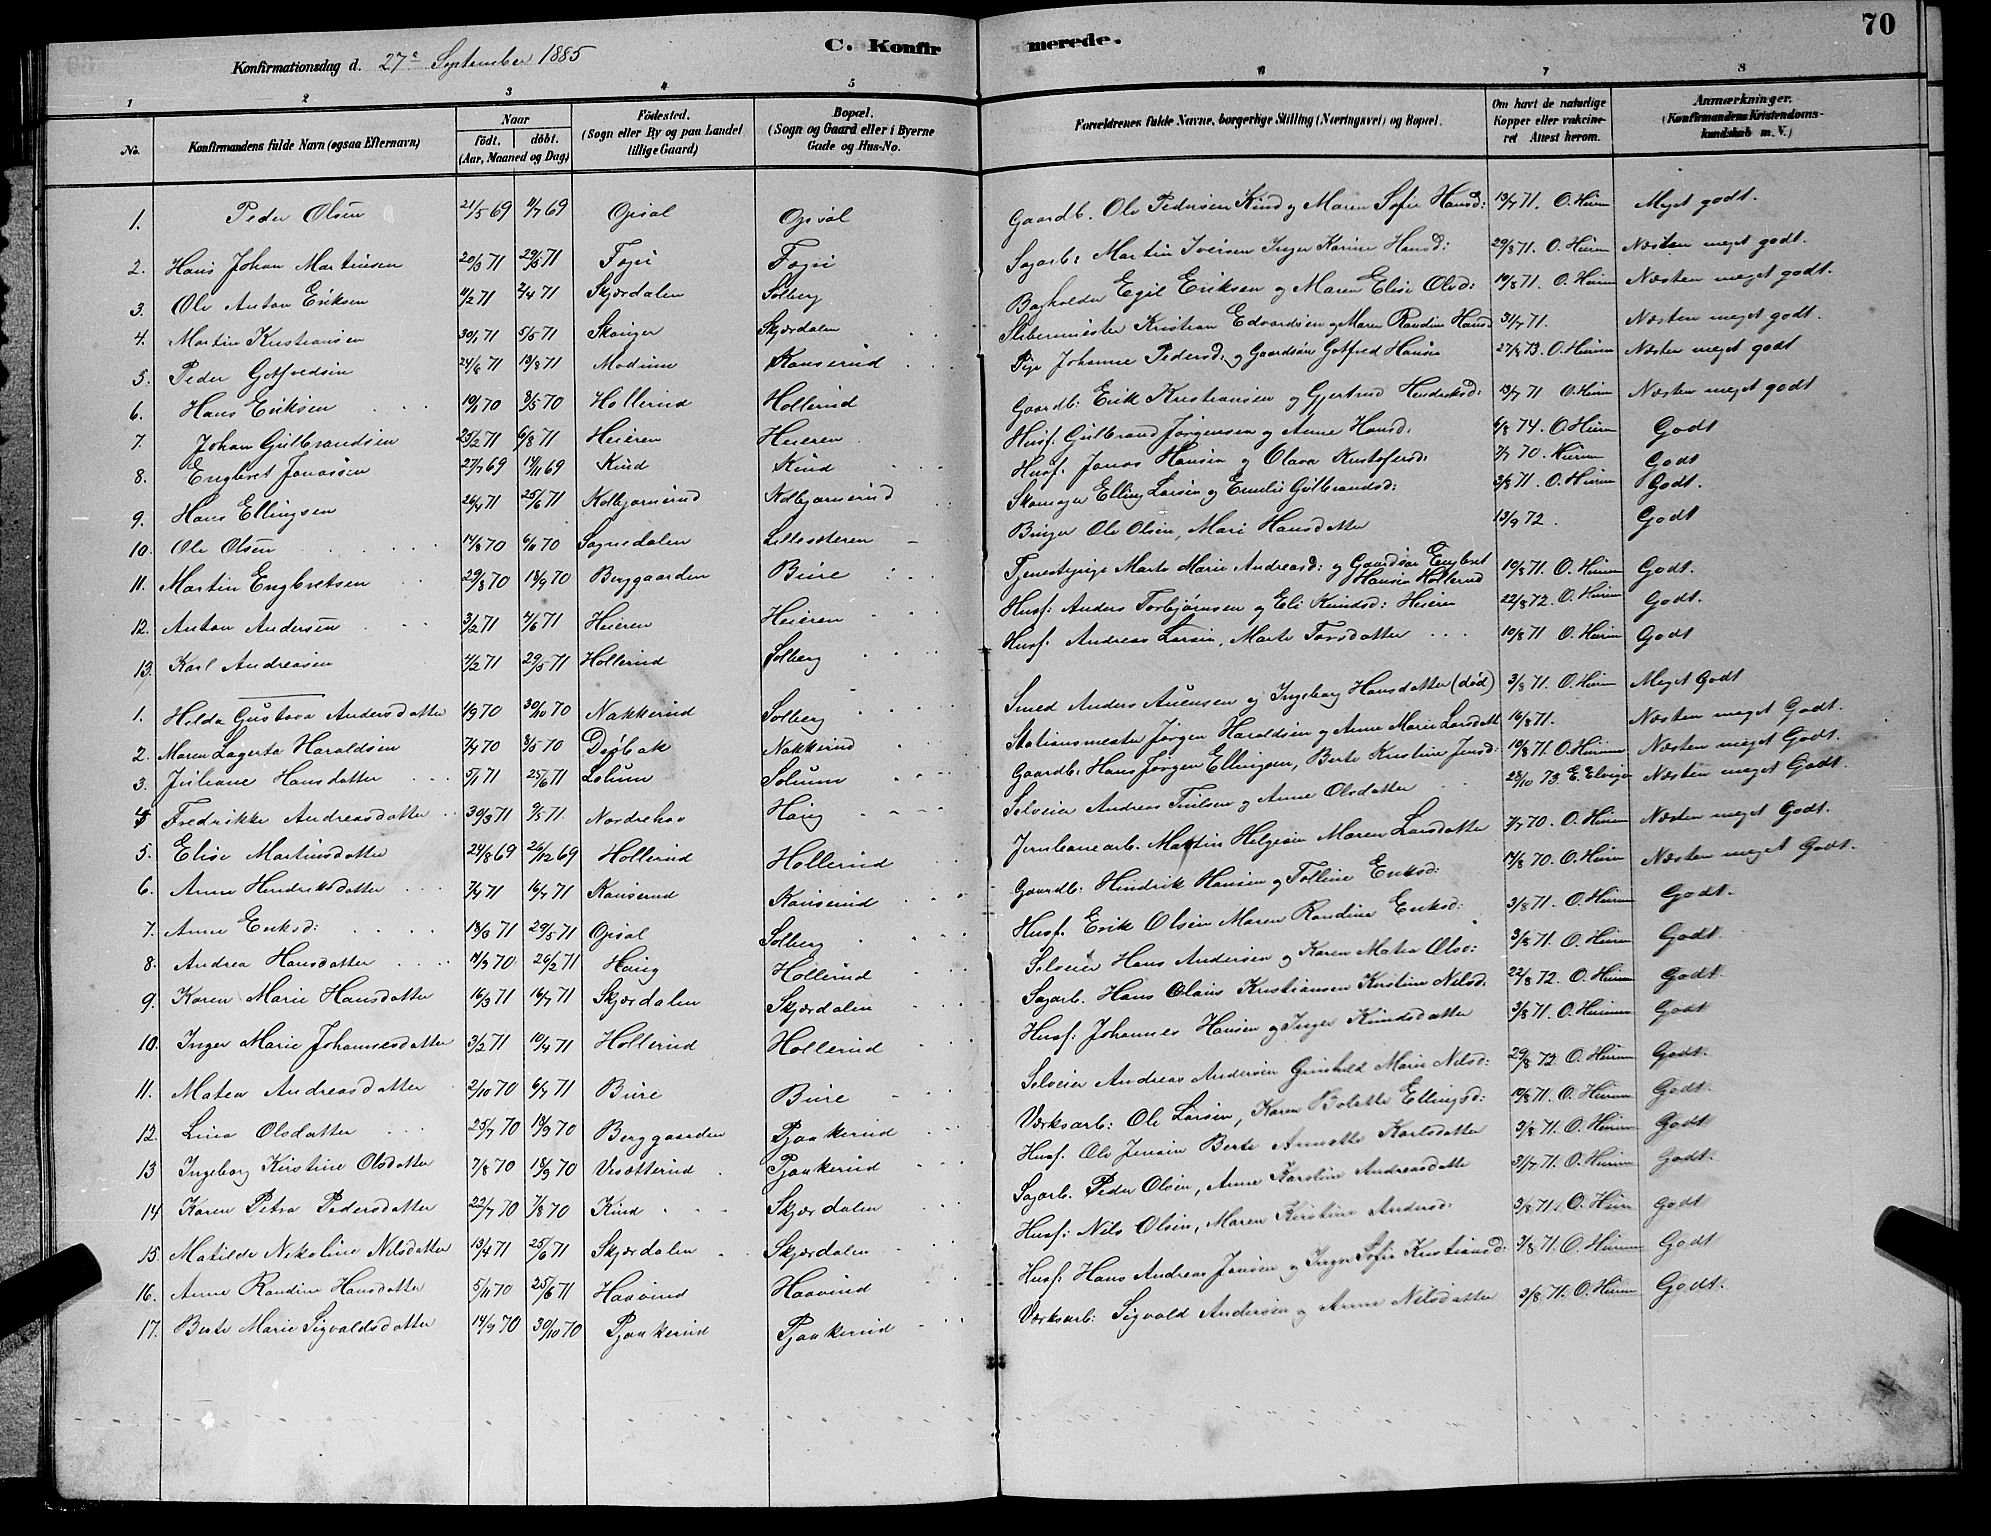 C. Konfirmerede.
70
Konfirmationsdag d. 27de September 1885
1 2 3 4 5 6 7 8
No. Konfirmandens fulde Navn (ogsaa Efternavn) Naar født. døbt. (Aar, Maaned og Dag) Fødested. (Sogn eller By og paa Landet tillige Gaard) Bopæl. (Sogn og Gaard eller i Byerne Gade og Hus-No. Forældrenes fulde Navne, borgerlige Stilling (Næringsvei) og Bopæl. Om havt de naturlige Kopper eller vakcineret Attest herom. Anmærkninger. (Konfirmandens Kristendomskundskab m. V.)
1. Peder Olsen 21/5 69 11/7 69 Opsal Opsal Gaardb. Ole Pedersen Kind og Maren Sofie Hansd: 13/7 71. O. Hiim Meget godt.
2. Hans Johan Martinsen 20/3 71 29/5 71 Fagri Fagri Sagarb: Martin Iversen Inger Karine Hansd: 29/8 71. O. Hiim Næsten meget godt.
3. Ole Anton Eriksen 11/2 71 2/4 71 Skjærdalen Solberg Bogholder Egil Eriksen og Maren Elise Olsd: 19/8 71. O. Hiim Næsten meget godt.
4. Martin Kristiansen 30/1 71 5/5 71 Skanger Skjærdalen Slibermester Kristian Edvardsen og Maren Randine Hansd 31/7 71. Næsten meget godt.
5. Peder Gotfredsen 24/6 71 13/8 71 Modum Kanserud Pige Johanne Pedersd: og Gaardsøn Gotfred Hansen 27/8 73. O. Hiim Næsten meget godt
6. Hans Eriksen 70 8/5 70 Hollerud Hollerud Gaardb: Erik Kristiansen og Gjertrud Hendriksd: 13/7 71 O. Hiim Næsten meget godt
7. Johan Gulbrandsen 23/2 71 6/8 71 Heieren Heieren Husf. Gulbrand Jørgensen og Anne Hansd. 6/8 74. O. Hiim Godt
8. Engbret Jonassen 27/7 69 14/11 69 Kind Kind Husf. Jonas Hansen og Olava Kristofersd: 7/7 70. Hiim Godt
9. Hans Ellingsen 26/4 71 25/6 71 Kolbjørnerud Kolbjørnerud Skomager Elling Larsen og Emilie Gulbrandsd: 3/8 71. O. Hiim Godt.
10. Ole Olsen 14/8 70 6/11 70 Sognedalen Lillesæteren Binger Ole Olsen, Mari Hansdatter 13/9 72. Godt
11. Martin Engbretsen 29/8 70 18/9 70 Berggaarden Bure Tjenestepige Marte Marie Andreasd: og Gaardsøn Engbret Hansen Hollerud 10/8 71. O. Hiim Godt.
12. Anton Andersen 3/2 71 4/6 71 Heieren Heieren Husf: Anders Torbjørnsen og Eli Knudsd: Heieren 22/8 72. O. Hiim Godt.
13. Karl Andreasen 4/2 71 29/5 71 Hollerud Solberg Husf. Andreas Larsen, Marte Torsdatter 10/8 71 O. Hiim Godt
1. Helda Gustava Andersdatter 1/9 70 30/10 70 Nakkerud Solberg Smed Anders Auensen og Ingeborg Hansdatter (død) 3/8 71. O. Hiim Meget Godt
2. Maren Lagerta Haraldsen 7/4 70 8/5 70 Drøbak Nakkerud Stationsmester Jørgen Haraldsen og Anne Marie Larsdatt 16/8 71. Næsten meget Godt.
3. Juliane Hansdatter 5/1 71 25/6 71 Solum Solum Gaardb: Hans Jørgen Ellingsen, Berte Kristine Jensd: 10/8 71. O. Hiim Næsten meget Godt.
4 Fredrikke Andreasdatter 30/3 71 9/5 71. Norderhov Haug Selveier Andreas Truelsen og Anne Olsdatter 28/10 73. E. Elvigen Næsten meget Godt.
5. Elise Martinsdatter 24/8 69 26/12 69 Hollerud Hollerud Jernbanearb. Martin Helgesen Maren Larsdatter 7/7 70. O. Hiim Næsten meget Godt.
6. Anne Hendriksdatter 7/4 71 16/7 71 Kanserud Kanserud Gaardb: Hindrik Hansen og Tolline Eriksd: 14/8 70. O. Hiim Næsten meget Godt.
7. Anne Eriksd: 13/3 71 29/5 71 Opsal Solberg Husf. Erik Olsen Maren Randine Eriksd: 3/8 71. O. Hiim Godt.
8. Andrea Hansdatter 11/9 70 26/2 71 Haug Hollerud Selveier Hans Andersen og Karen Matea Olsd: 3/8 71. O. Hiim Godt.
9. Karen Marie Hansdatter 16/3 71 16/7 71 Skjærdalen Skjærdalen Sagarb. Hans Olaus Kristiansen Kirstine Nilsd. 22/8 72. O. Hiim Godt.
10. Inger Marie Johannesdatter 3/2 71 10/4 71 Hollerud Hollerud Husf: Johannes Hansen og Inger Knudsdatter 3/8 71. O. Hiim Godt
11. Matea Andreasdatter 2/10 70 6/7 71 Bure Bure Selveier Andreas Andersen Gunhild Marie Nilsd: 29/8 72. O. Hiim Godt.
12. Lina Olsdatter 25/7 70 18/9 70 Berggaarden Pjaakerud Værksarb: Ole Larsen, Karen Bolette Ellingsd: 19/8 71. O. Hiim Godt.
13 Ingeborg Kirstine Olsdatter 7/8 70 18/9 70 Vesætterud Pjaakerud Husf. Ole Jensen Berte Annette Karlsdatter 3/8 71. O. Hiim Godt
14 Karen Petra Pedersdatter 22/7 70 7/8 70 Kind Skjærdalen Sagarb. Peder Olsen, Anne Karstine Andreasdatte 31/7 71. O. Hiim Godt.
15. Matilde Nikoline Nilsdatter 13/4 71 25/6 71 Skjærdalen Skjærdalen Husf: Nils Olsen, Maren Kirstine Andersd: 3/8 71. O. Hiim Godt
16. Anne Randine Hansdatter 5/11 70 25/6 71 Haavind Haavind Husf: Hans Andreas Jensen og Inger Sofie Kristiansd: 3/8 71. O. Hiim Godt
17. Berte Marie Sigvaldsdatter 14/9 70 30/10 70 Pjaakerud Pjaakerud Værksarb: Sigvald Andersen og Anne Nilsdatter 3/8 71. O. Hiim Godt.